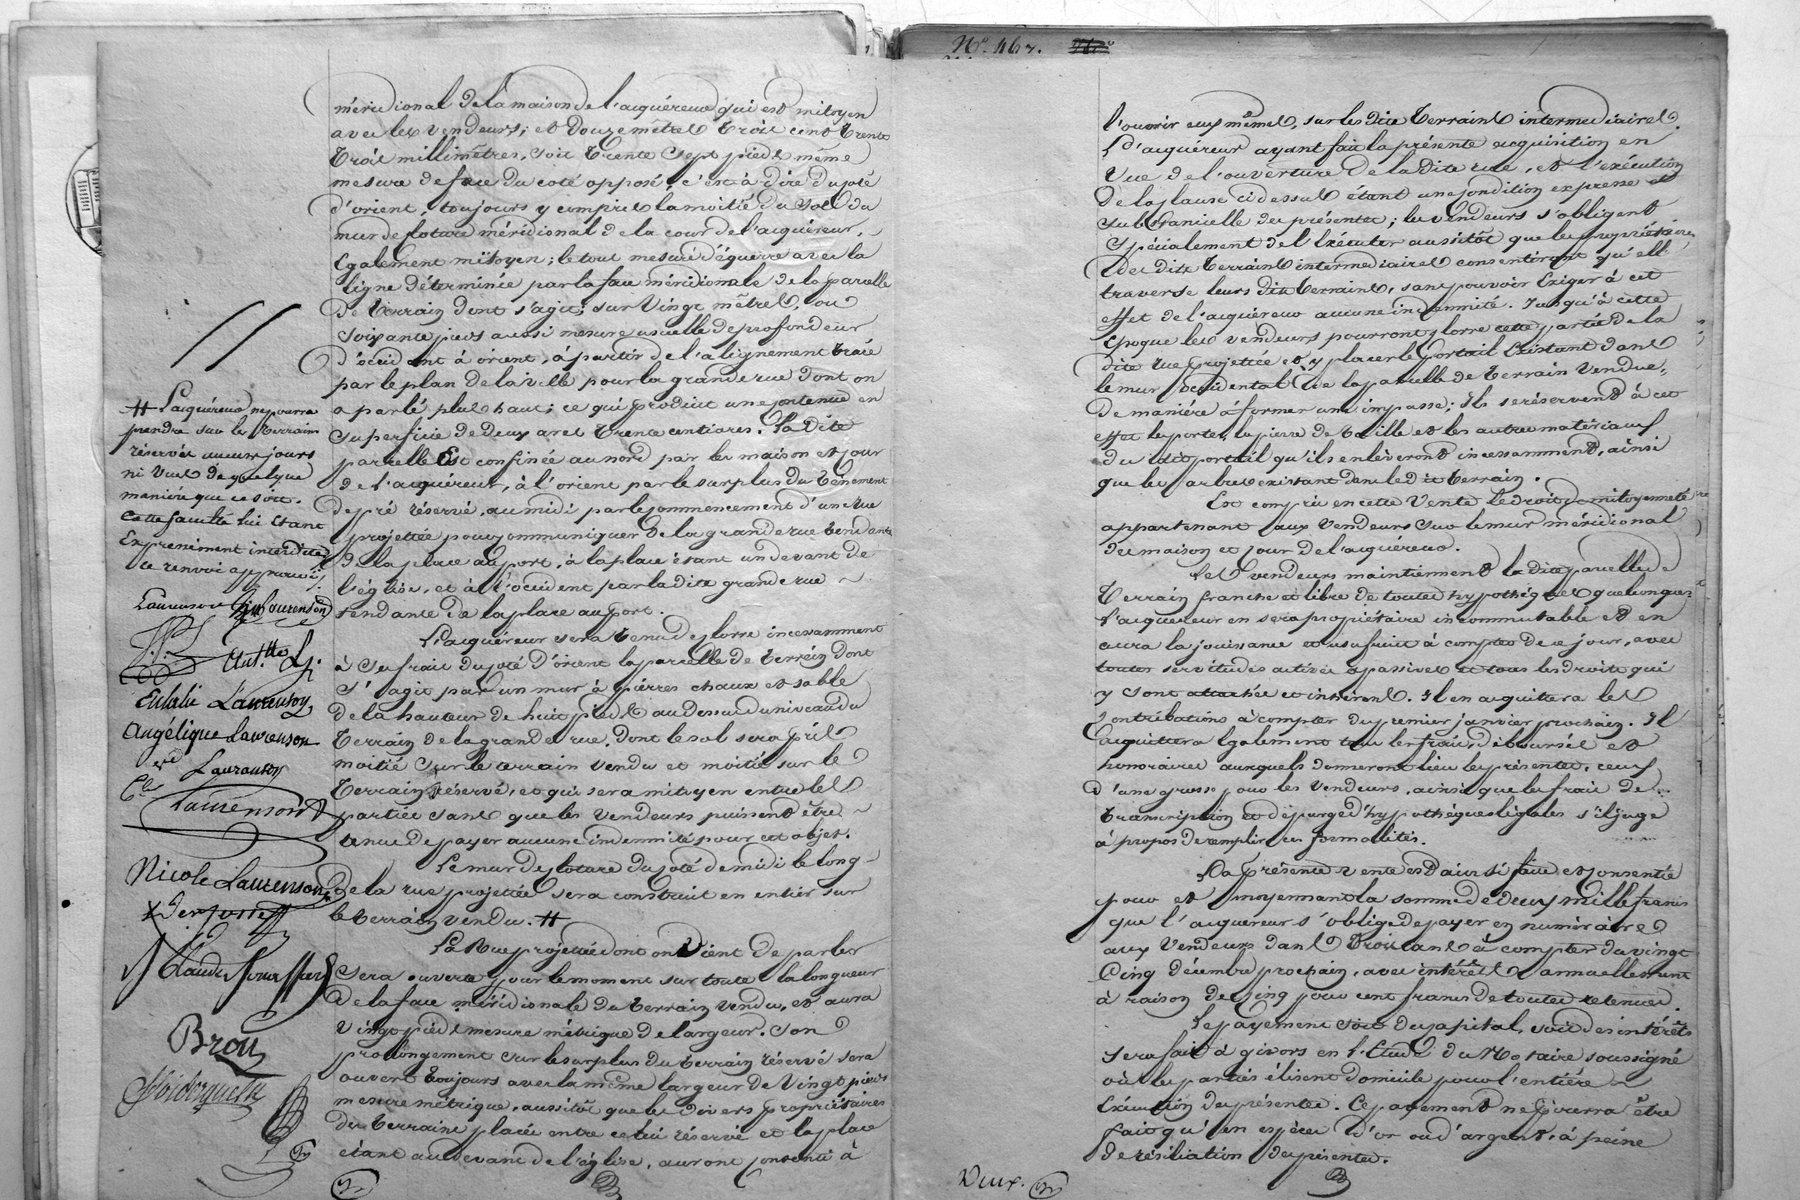 méridional de la maison de l'acquéreur qui est mitoyen
avec les vendeurs; et douze mètres trois cent trente
trois millimètres, soit trente sept pieds même
mesure de face du coté opposé, c'est à dire du coté
d'orient, toujours y compris la moitié du sol du
mur de cloture méridional de la cour de l'acquéreur,
également mitoyen; le tout mesuré d'équerre avec la
ligne déterminée par la face méridionale de la parcelle
de terrain dont s'agit; sur vingt mètres, ou
soixante pieds aussi mesure usuelle de profondeur
d'occident à orient, à partir de l'alignement tracé
par le plan de la ville pour la grande rue dont on
a parlé plus haut; ce qui produit une contenue en
superficie de deux ares trente centiares. La dite
parcelle Est confinée au nord par les maison et cour
de l'acquéreur, à l'orient par le surplus du tènement
de pré réservé, au midi par le commencement d'une rue
projettée pour communiquer de la grande rue tendante
de la place au port, à la place étant au devant de
l'église, et à l'occident par la dite grande rue
tendante de la place au port.
L'acquéreur sera tenu de clorre incessamment
à ses frais du coté d'orient la parcelle de terrain dont
s'agit par un mur à pierres chaux et sable
de la hauteur de huit pieds au dessus du niveau du
terrain de la grande rue, dont le sol sera pris
moitié sur le terrain vendu et moitié sur le
terrain réservé, et qui sera mitoyen entre les
parties sans que les vendeurs puissent être
tenus de payer aucune indemnité pour cet objet.
Le mur de cloture du coté de midi le long
de la rue projettée sera construit en entier sur
le terrain vendu. #
La Rue projettée dont on Vient de parler
sera ouverte pour le moment sur toute la longueur
de la face méridionale du terrain vendu, et aura
vingt pieds mesure métrique de largeur. Son
prolongement sur le surplus du terrain réservé sera
ouvert toujours avec la même largeur de vingt pieds
mesure métrique, aussitôt que les divers propriétaires
des terrains placés entre celui réservé et la place
étant au devant de l'église, auront consenti à
# L'acquéreur ne pourra
prendre sur les terrains
réservés aucuns jours
ni vues de quelque
manière que ce soit.
Cette faculté lui étant
Expressément interdite
ce renvoi approuvé
Laurenson Laurenson
Ant.tte L.
Eulalie Laurenson
Angélique Laurenson
Laurenson
Laurenson
Nicole Laurenson
Claude
Brou
N° 467.
l'ouvrir eux mêmes, sur les dits terrains intermédiaires.
L'acquéreur ayant fait la présente acquisition en
vue de l'ouverture de la dite rue, et l'exécution
de la clause ci dessus étant une condition expresse et
substancielle des présentes; les vendeurs s'obligent
spécialement de l'Exécuter aussitôt que les propriétaires
des dits terrains intermédiaires consentiront qu'elle
traverse leurs dits terrains, sans pouvoir Exiger à cet
effet de l'acquéreur aucune indemnité. Jusqu'à cette
époque les vendeurs pourront clorre cette partie de la
dite rue projettée et y placer le portail Existant dans
le mur occidental de la parcelle de terrain vendue,
de manière à former une impasse; Ils se réservent à cet
effet les portes, la pierre de taille et les autres matériaux
du dit portail qu'ils enlèveront incessamment, ainsi
que les arbres existant dans le dit terrain.
Est compris en cette vente le droit de mitoyenneté
appartenant aux vendeurs sur le mur méridional
des maison et cour de l'acquéreur.
Les vendeurs maintiennent la dite parcelle de
terrain franche et libre de toutes hypothèques quelconques.
L'acquéreur en sera propriétaire incommutable et en
aura la jouissance et usufruit à compter de ce jour, avec
toutes servitudes actives et passives et tous les droits qui
y sont attachés et inhérents. Il en acquittera les
contributions à compter du premier janvier prochain. Il
acquittera également tous les frais, déboursés et
honoraires auxquels donneront lieu les présentes, ceux
d'une grosse pour les vendeurs, ainsi que les frais de
transcription et de purge d'hypothèques légales s'il juge
à propos de remplir ces formalités.
La présente vente est ainsi faite et consentie
pour et moyennant la somme de deux mille francs
que l'acquéreur s'oblige de payer en numéraire
aux vendeurs dans trois ans à compter du vingt
Cinq décembre prochain, avec intérêts annuellement
à raison de cinq pour cent francs de toutes retenues.
Le payement soit du capital, soit des intérêts
sera fait à givors en l'Etude du Notaire soussigné
où les parties élisent domicile pour l'entière
Exécution des présentes. Ce payement ne pourra être
fait qu'en espèces d'or ou d'argent, à peine
de résiliation des présentes.
Deux.